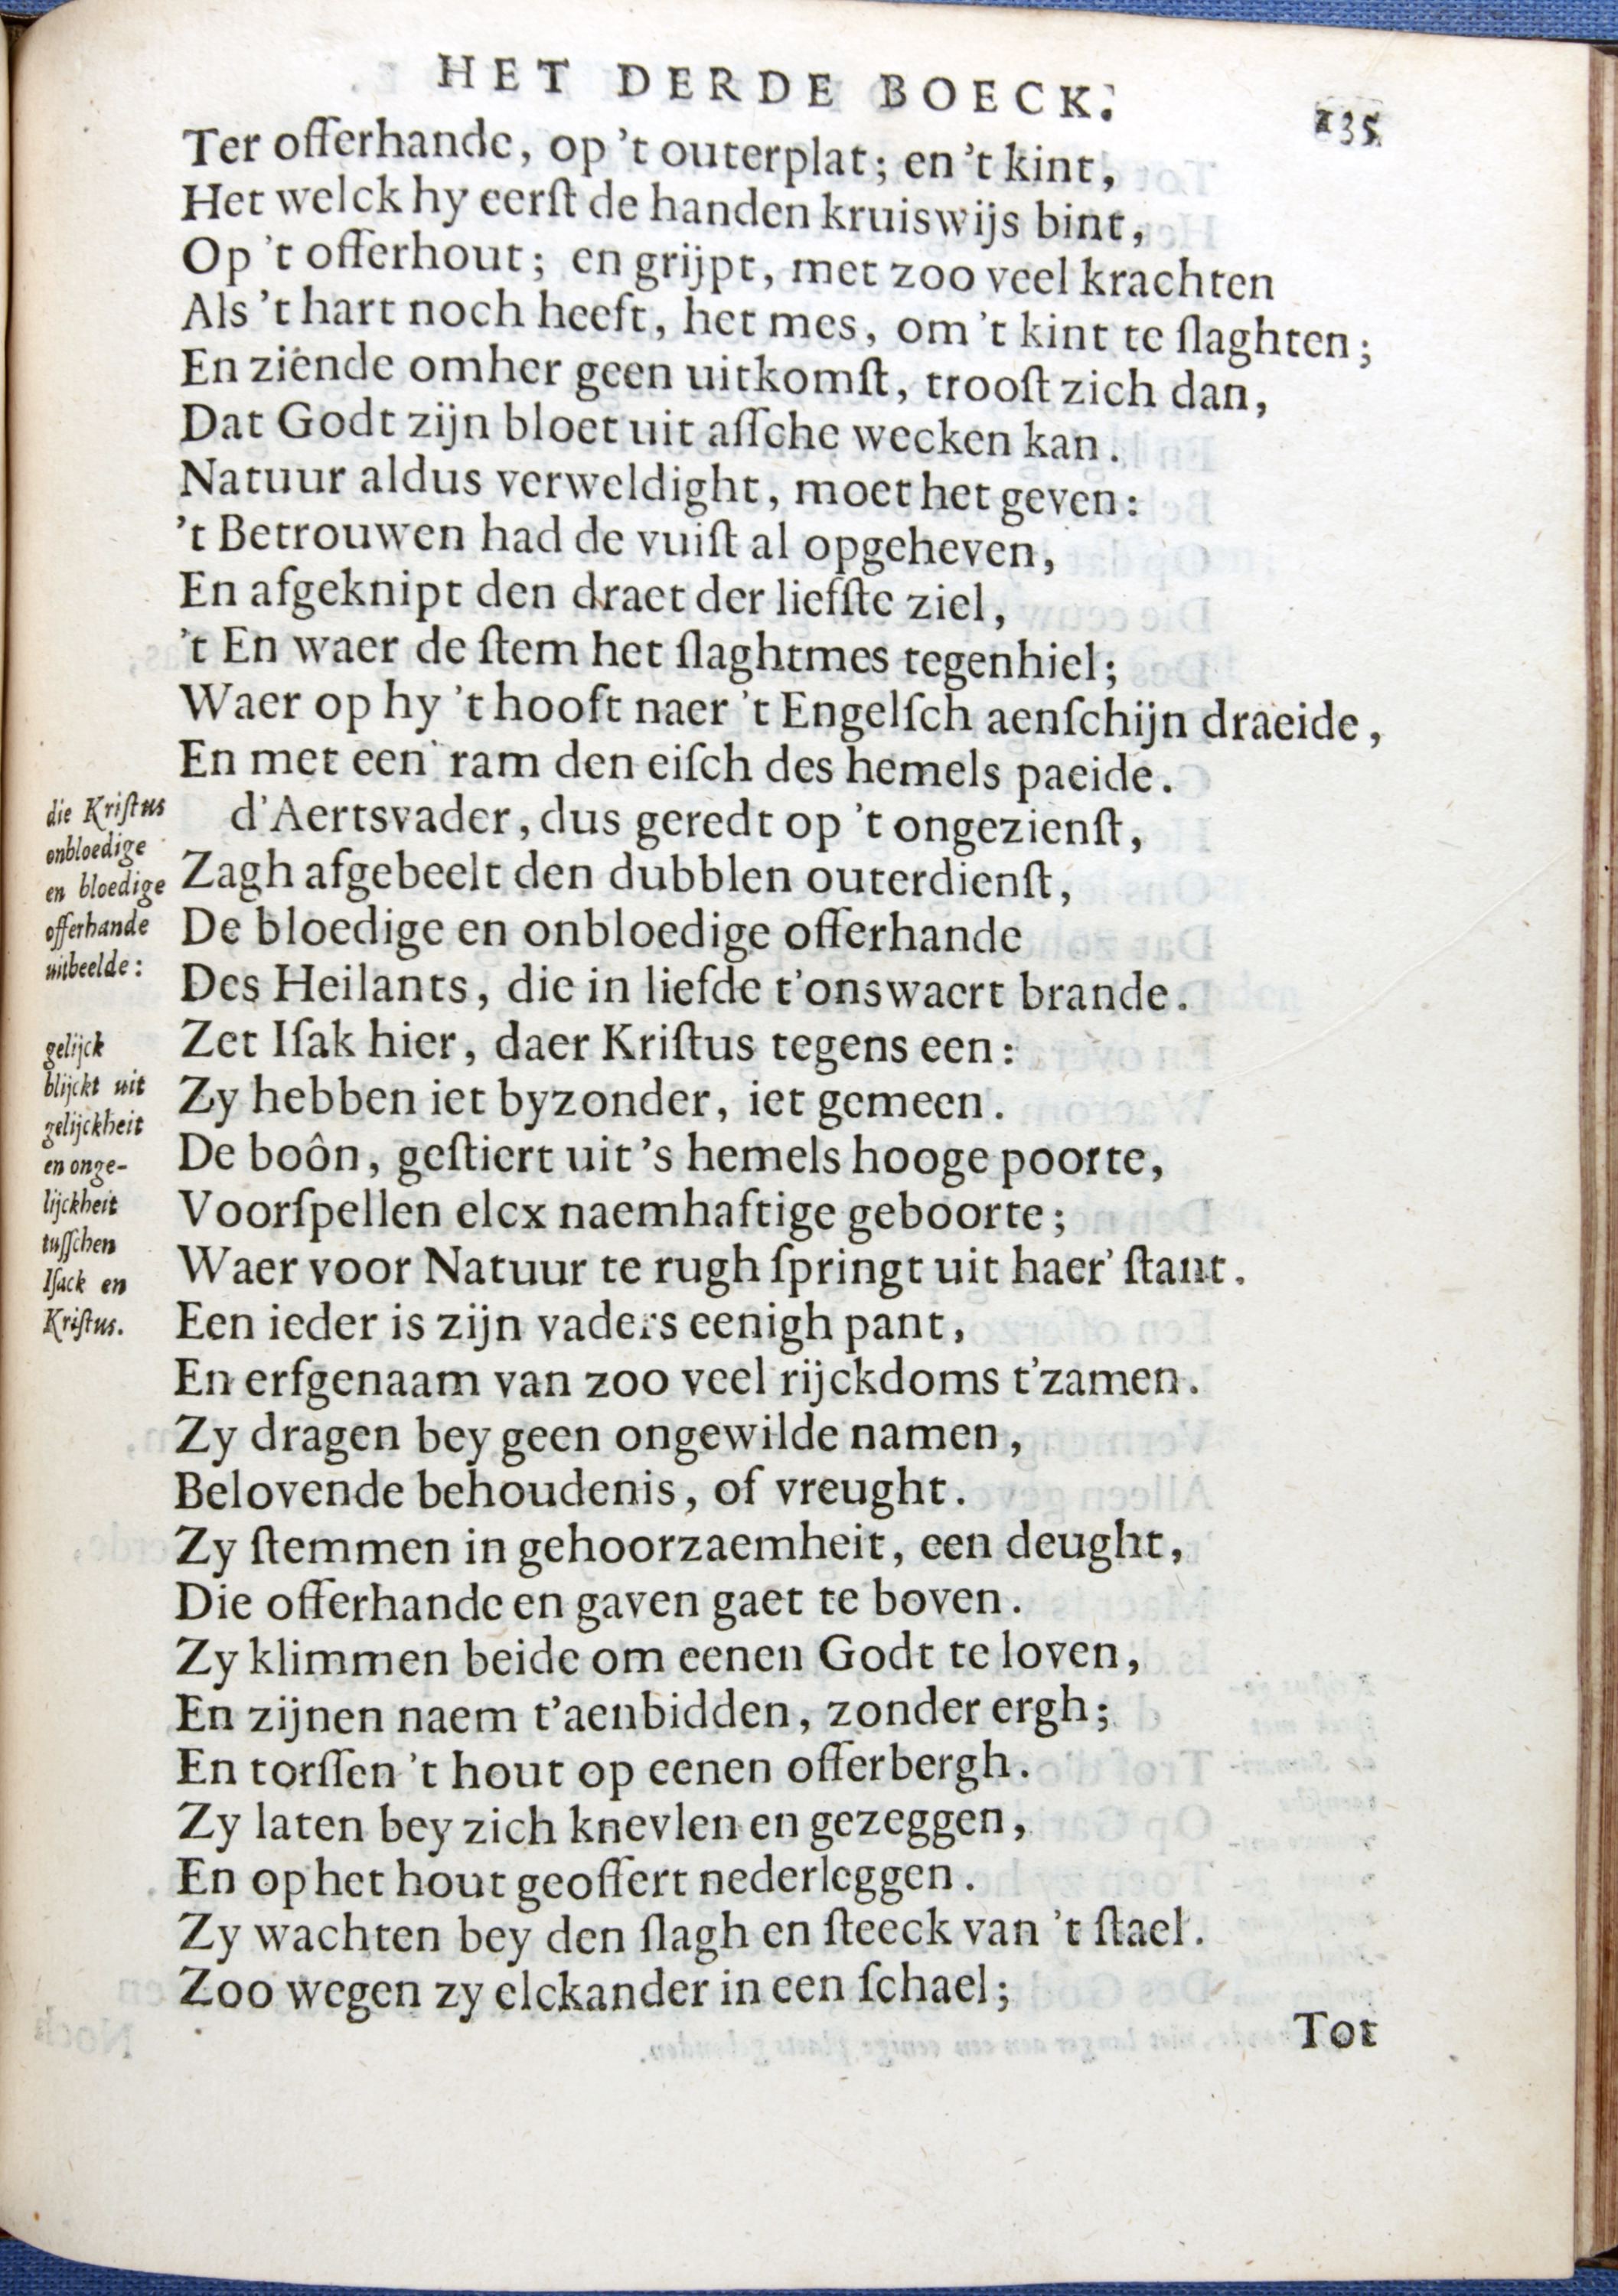 HET DERDE BOECK. 235
Ter offerhande, op 't outerplat; en 't kint,
Het welck hy eerſt de handen kruiswijs bint,
Op 't offerhout; en grijpt, met zoo veel krachten
Als 't hart noch heeft, het mes, om 't kint te ſlaghten;
En ziende omher geen uitkomſt, trooſt zich dan,
Dat Godt zijn bloet uit aſſche wecken kan.
Natuur aldus verweldight, moet het geven:
't Betrouwen had de vuiſt al opgeheven,
En afgeknipt den draet der liefſte ziel,
't En waer de ſtem het ſlaghtmes tegenhiel;
Waer op hy 't hooft naer 't Engelſch aenſchijn draeide,
En met een' ram den eiſch des hemels paeide.
d'Aertsvader, dus geredt op 't ongezienſt,
Zagh afgebeelt den dubblen outerdienſt,
De bloedige en onbloedige offerhande
Des Heilants, die in liefde t'onswaert brande.
Zet Iſak hier, daer Kriſtus tegens een:
Zy hebben iet byzonder, iet gemeen.
De boôn, geſtiert uit 's hemels hooge poorte,
Voorſpellen elcx naemhaftige geboorte;
Waer voor Natuur te rugh ſpringt uit haer' ſtant.
Een ieder is zijn vaders eenigh pant,
En erfgenaam van zoo veel rijckdoms t'zamen.
Zy dragen bey geen ongewilde namen,
Belovende behoudenis, of vreught.
Zy ſtemmen in gehoorzaemheit, een deught,
Die offerhande en gaven gaet te boven.
Zy klimmen beide om eenen Godt te loven,
En zijnen naem t'aenbidden, zonder ergh;
En torſſen 't hout op eenen offerbergh.
Zy laten bey zich knevlen en gezeggen,
En op het hout geoffert nederleggen.
Zy wachten bey den ſlagh en ſteeck van 't ſtael.
Zoo wegen zy elckander in een ſchael;
Tot
die Kriſtus
onbloedige
en bloedige
offerhande
uitbeelde:
gelijck
blijckt uit
gelijckheit
en onge-
lijckheit
tuſſchen
Iſack en
Kriſtus.